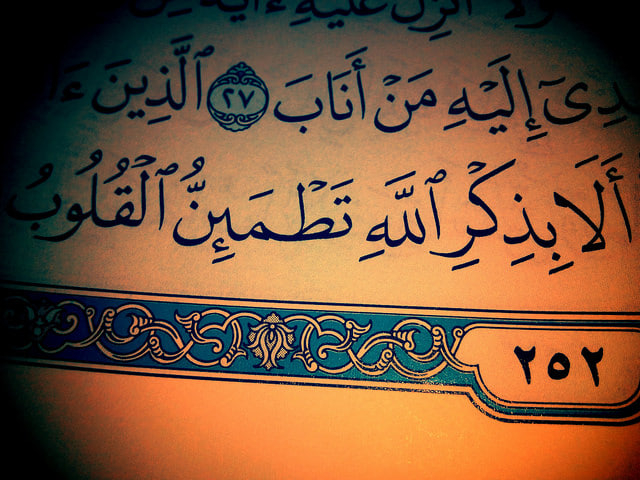 أُنزِلَ عَلَيْهِ ءَايَةٌ مِّن
دِىٓ إِلَيْهِ مَنْ أَنَابَ ٢٧ ٱلَّذِينَ ءَا
أَلَا بِذِكْرِ ٱللَّهِ تَطْمَئِنُّ ٱلْقُلُوبُ
٢٥٢